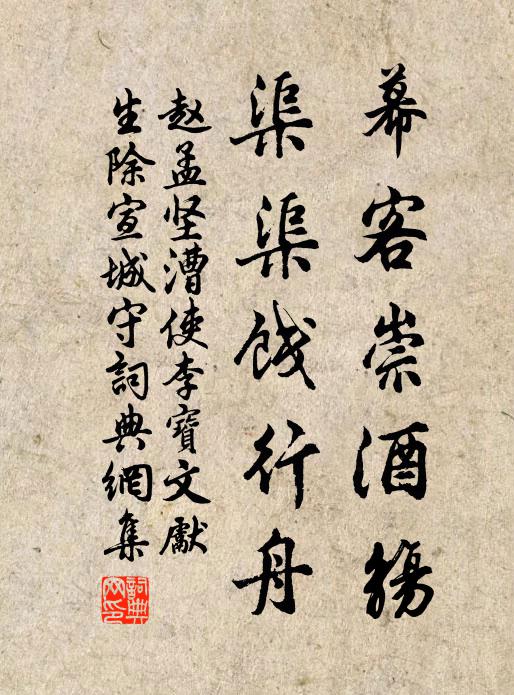 幕客崇酒觞
渠渠饯行舟
赵孟坚漕使李寳文獻
生除宣城守詞典網集
詞典網印